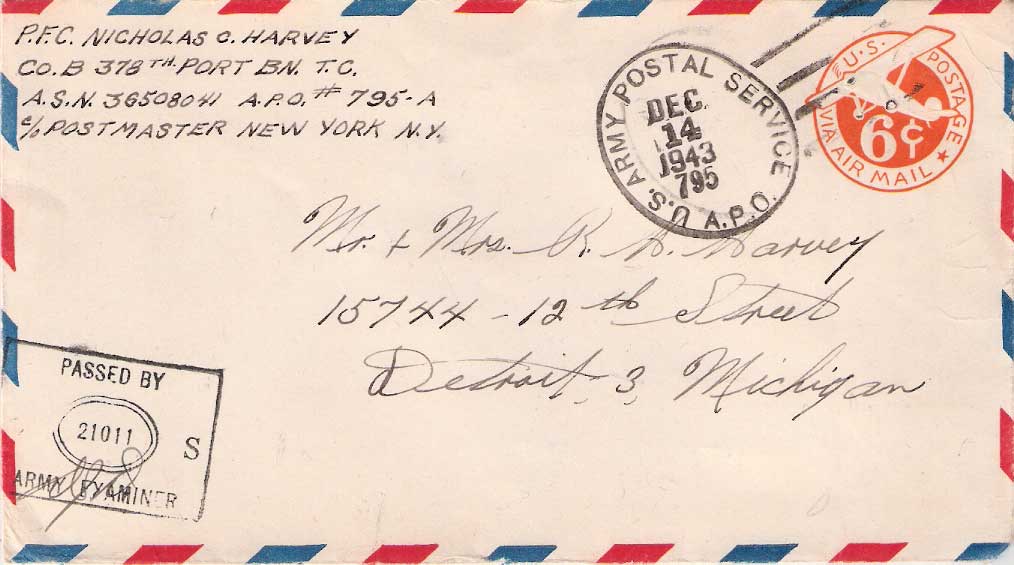 P.F.C. NICHOLAS O. HARVEY
CO. B 378TH. PORT BN. T.C.
A.S.N. 36508041 A.P.O. # 795-A
c/o POSTMASTER NEW YORK N.Y.
U.S. ARMY POSTAL SERVICE
DEC.
14
1943
795
A.P.O.
U.S. POSTAGE
6¢
VIA AIR MAIL
Mr. + Mrs. R. H. Harvey
15744 - 12th Street
Detroit, 3, Michigan
PASSED BY
21011 S
ARMY EXAMINER